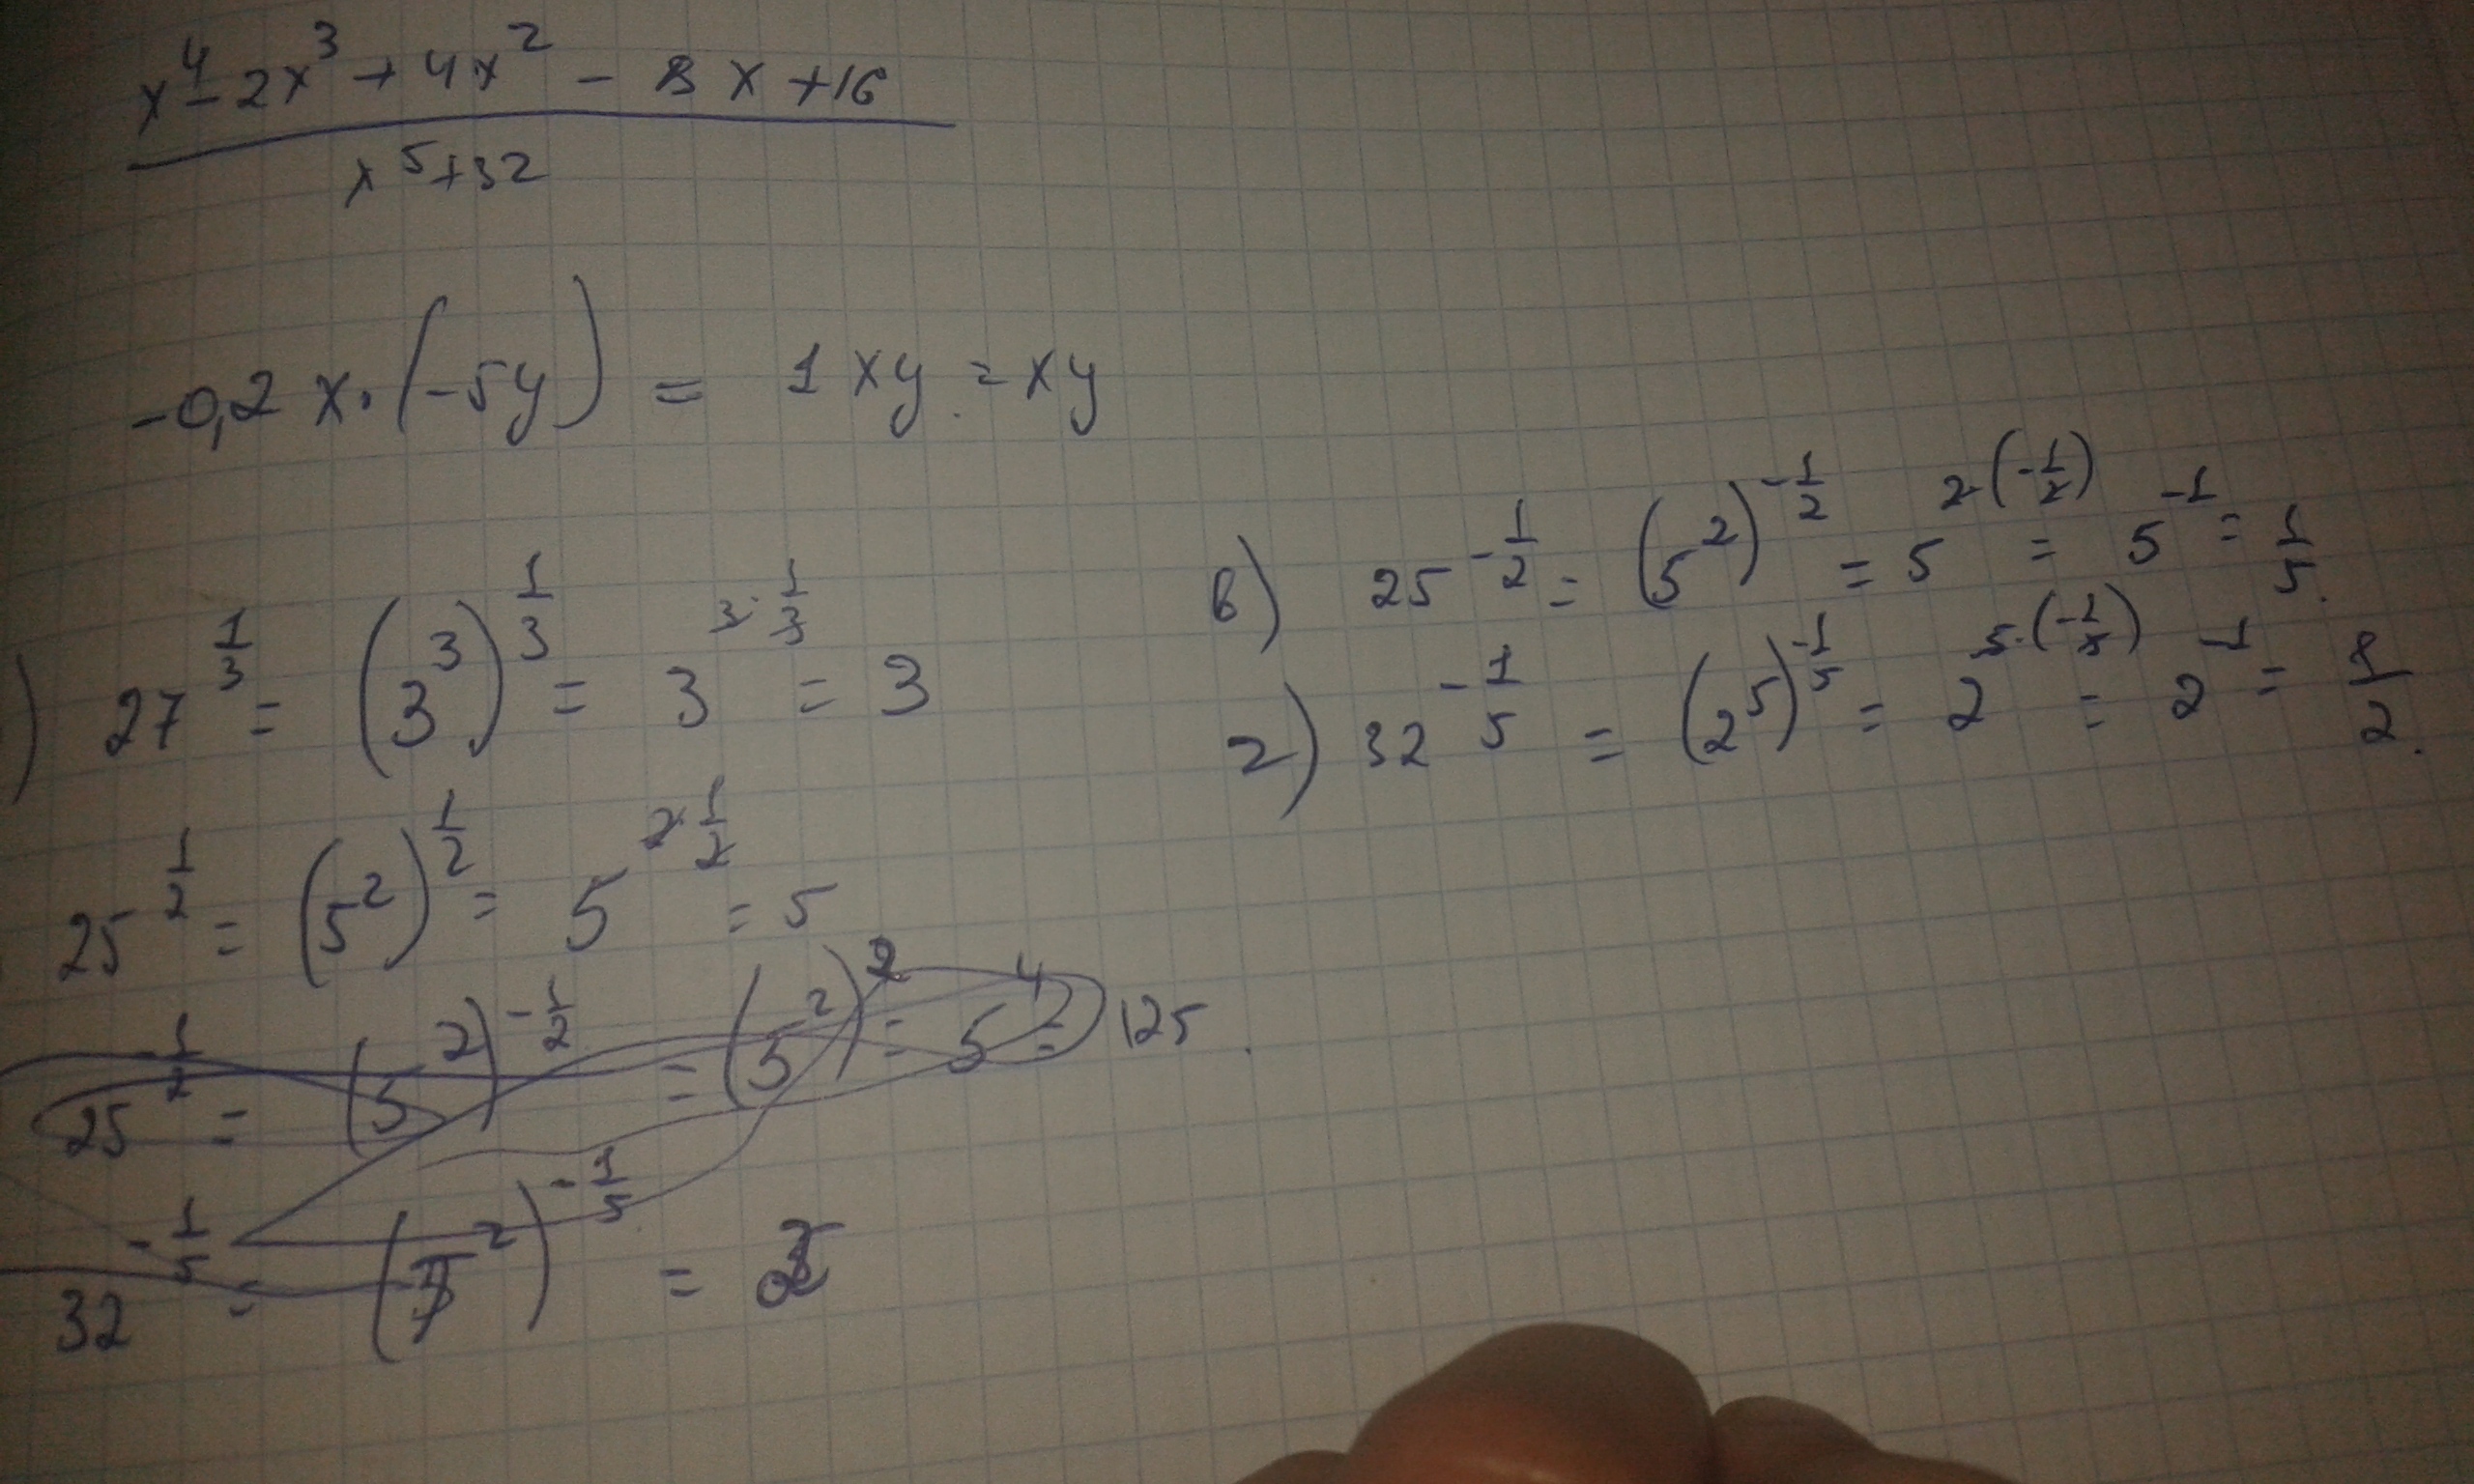 x⁴ - 2x³ + 4x² - 8x + 16
x⁵+32
-0,2 x·(-5y) = 1xy = xy
) 27^(1/3) = (3³)^(1/3) = 3^(3·1/3) = 3
25^(1/2) = (5²)^(1/2) = 5^(2·1/2) = 5
25^(-1/2) = (5²)^(-1/2) = (5²)² = 5⁴ = 125.
32^(-1/5) = ( ²)^(-1/5) =
в) 25^(-1/2) = (5²)^(-1/2) = 5^(2·(-1/2)) = 5^(-1) = 1/5.
г) 32^(-1/5) = (2⁵)^(-1/5) = 2^(5·(-1/5)) = 2^(-1) = 1/2.